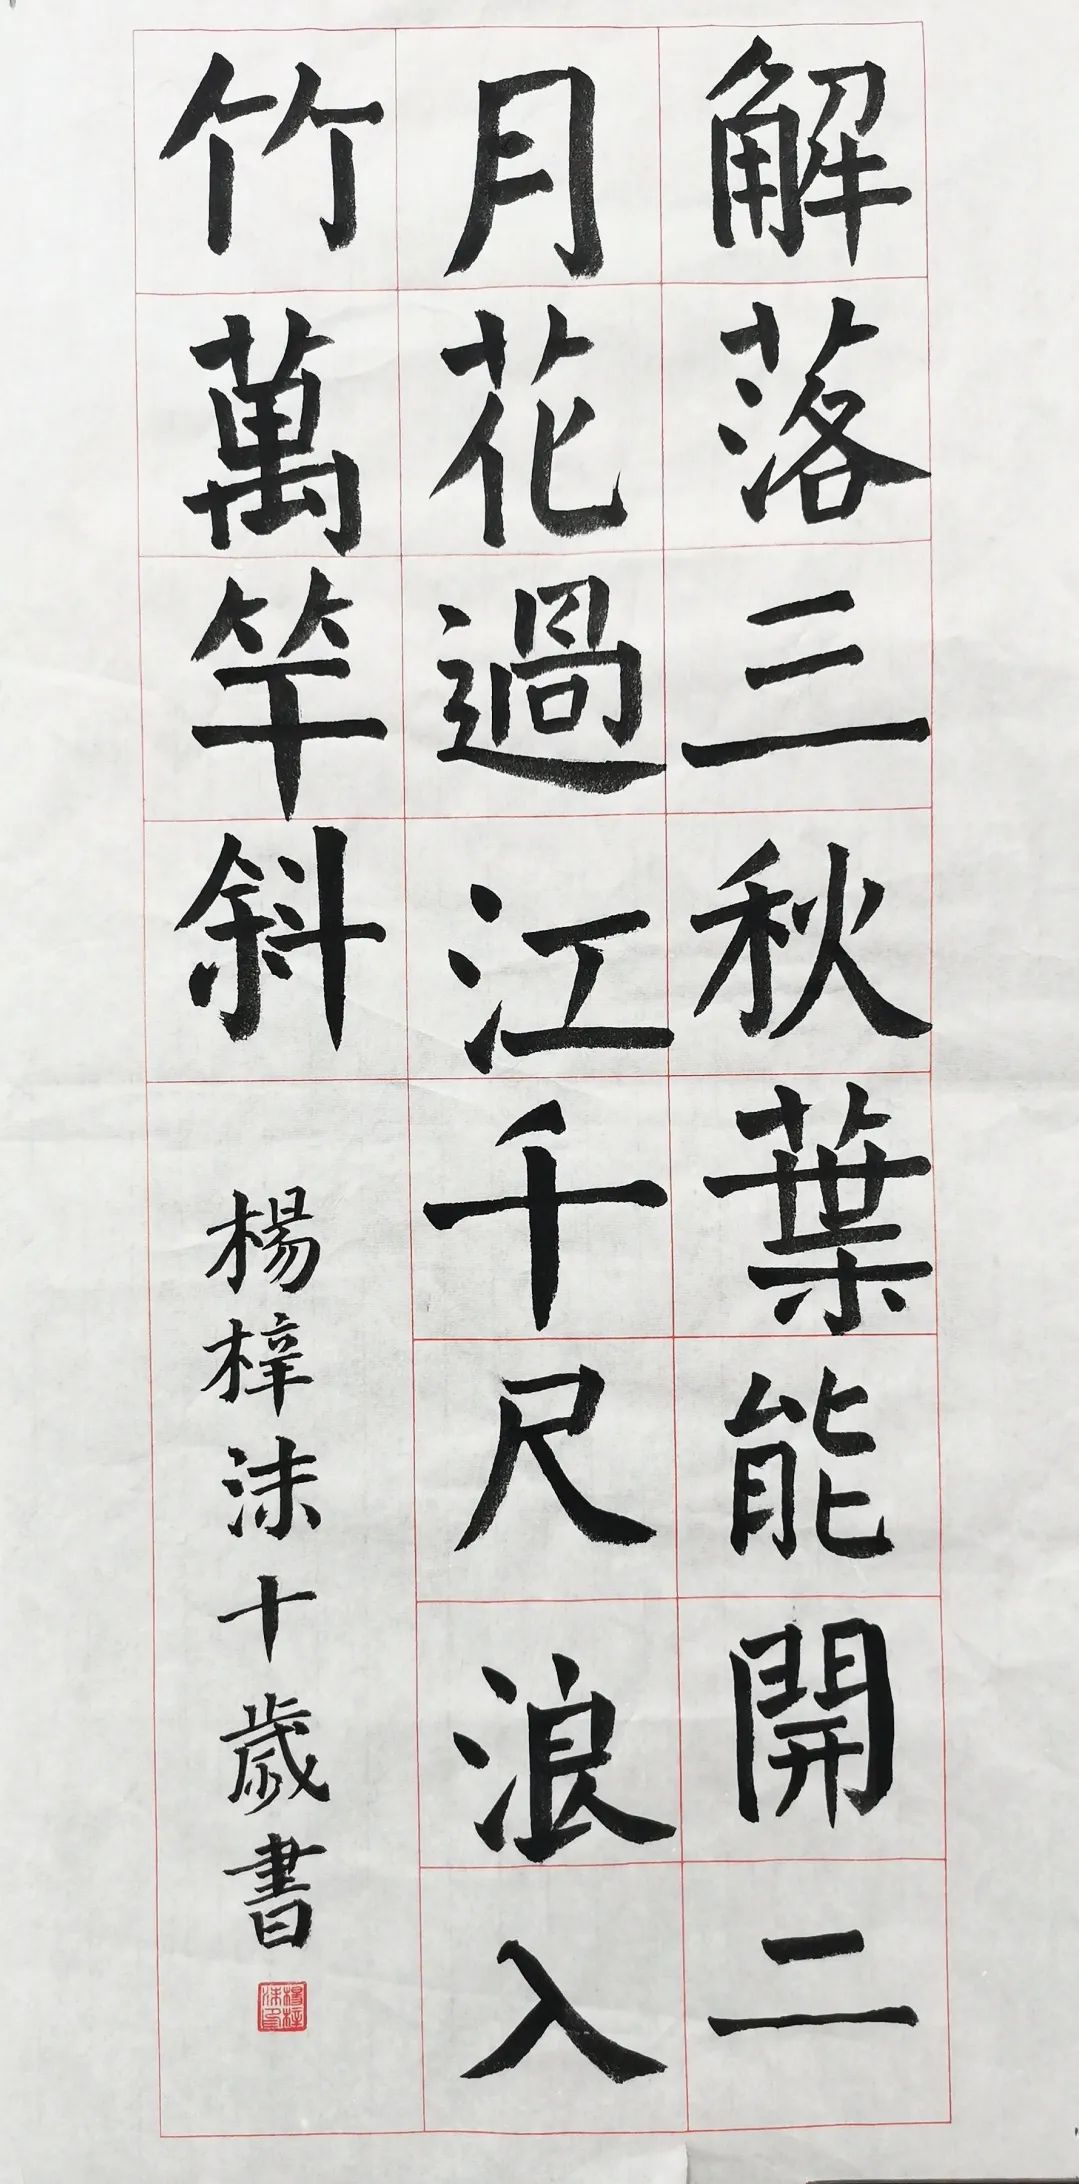 解落三秋葉能開二
月花過江千尺浪入
竹萬竿斜
楊梓沫十歲書
楊梓沫印